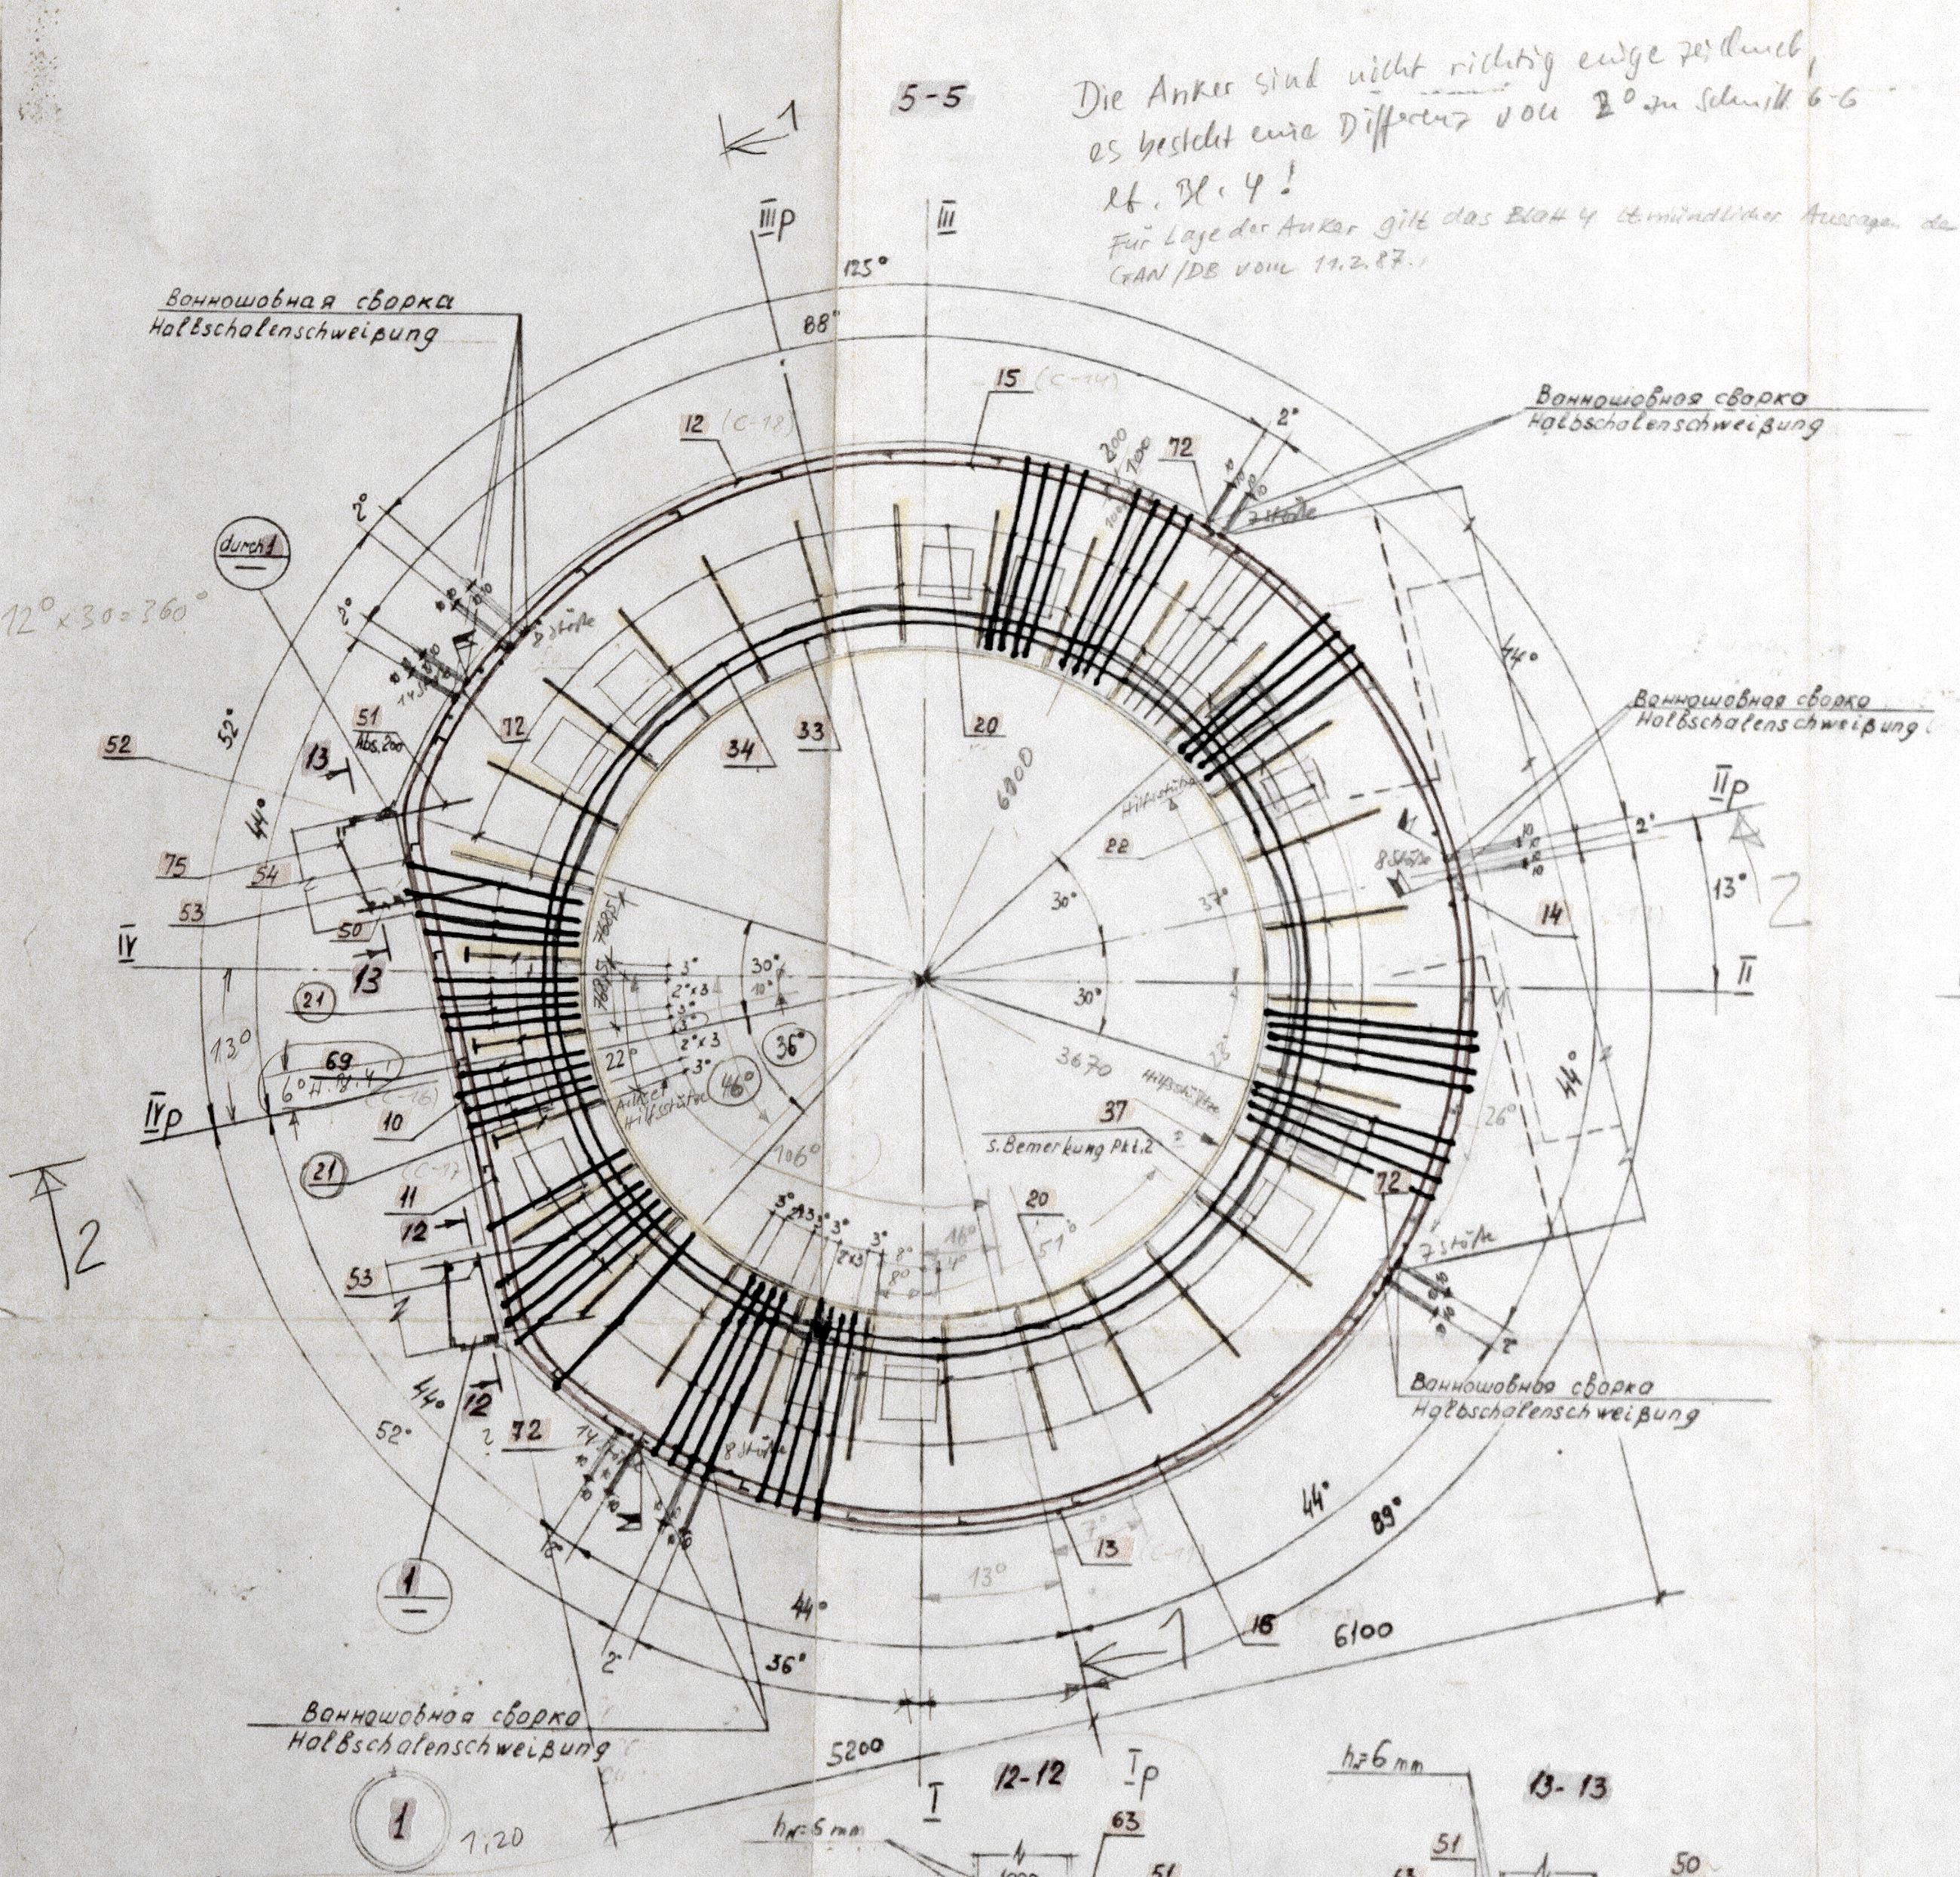 5-5
Die Anker sind nicht richtig einge zeichnet,
es besteht eine Differenz von 2° zu Schnitt 6-6
lt. Bl. 4!
Für Lage der Anker gilt das Blatt 4 lt. mündlicher Aussagen der
GAN/DB vom 11.2.87.
1
III p
III
125°
88°
Ванношовная сварка
Halbschalenschweißung
15 (C-14)
12 (C-18)
Ванношовная сварка
Halbschalenschweißung
2°
200
100
72
7 Stöße
2°
durch 1
12° x 30 = 360°
2°
2 Stöße
44°
52°
51
Abs. 200
72
52
13
34
33
20
6900
Ванношовная сварка
Halbschalenschweißung
II p
Hilfsstütze
22
44°
75
54
8 Stöße
2°
53
50
30°
37°
13°
2
14
IV
13
7685
7685
30°
10°
3°
2°x3
3°
3°
2°x3
3°
30°
II
21
36°
13°
69
6°
22°
46°
3670
28°
Hilfsstütze
44°
IV p
10
(C-16)
Hilfsstütze
37
s. Bemerkung Pkt. 2
26°
106°
21
(C-17)
11
12
20
72
2
3°
3°
3°
2x3
8°
8°
16°
4°
51°
7 Stöße
53
2°
Ванношовная сварка
Halbschalenschweißung
44°
12
52°
72
?
8 Stöße
44°
89°
7°
13
13°
1
44°
1
16
6100
2°
36°
Ванношовная сварка
Halbschalenschweißung
5200
12-12
I p
h=6 mm
13-13
I
1
1:20
h=6 mm
63
51
51
50